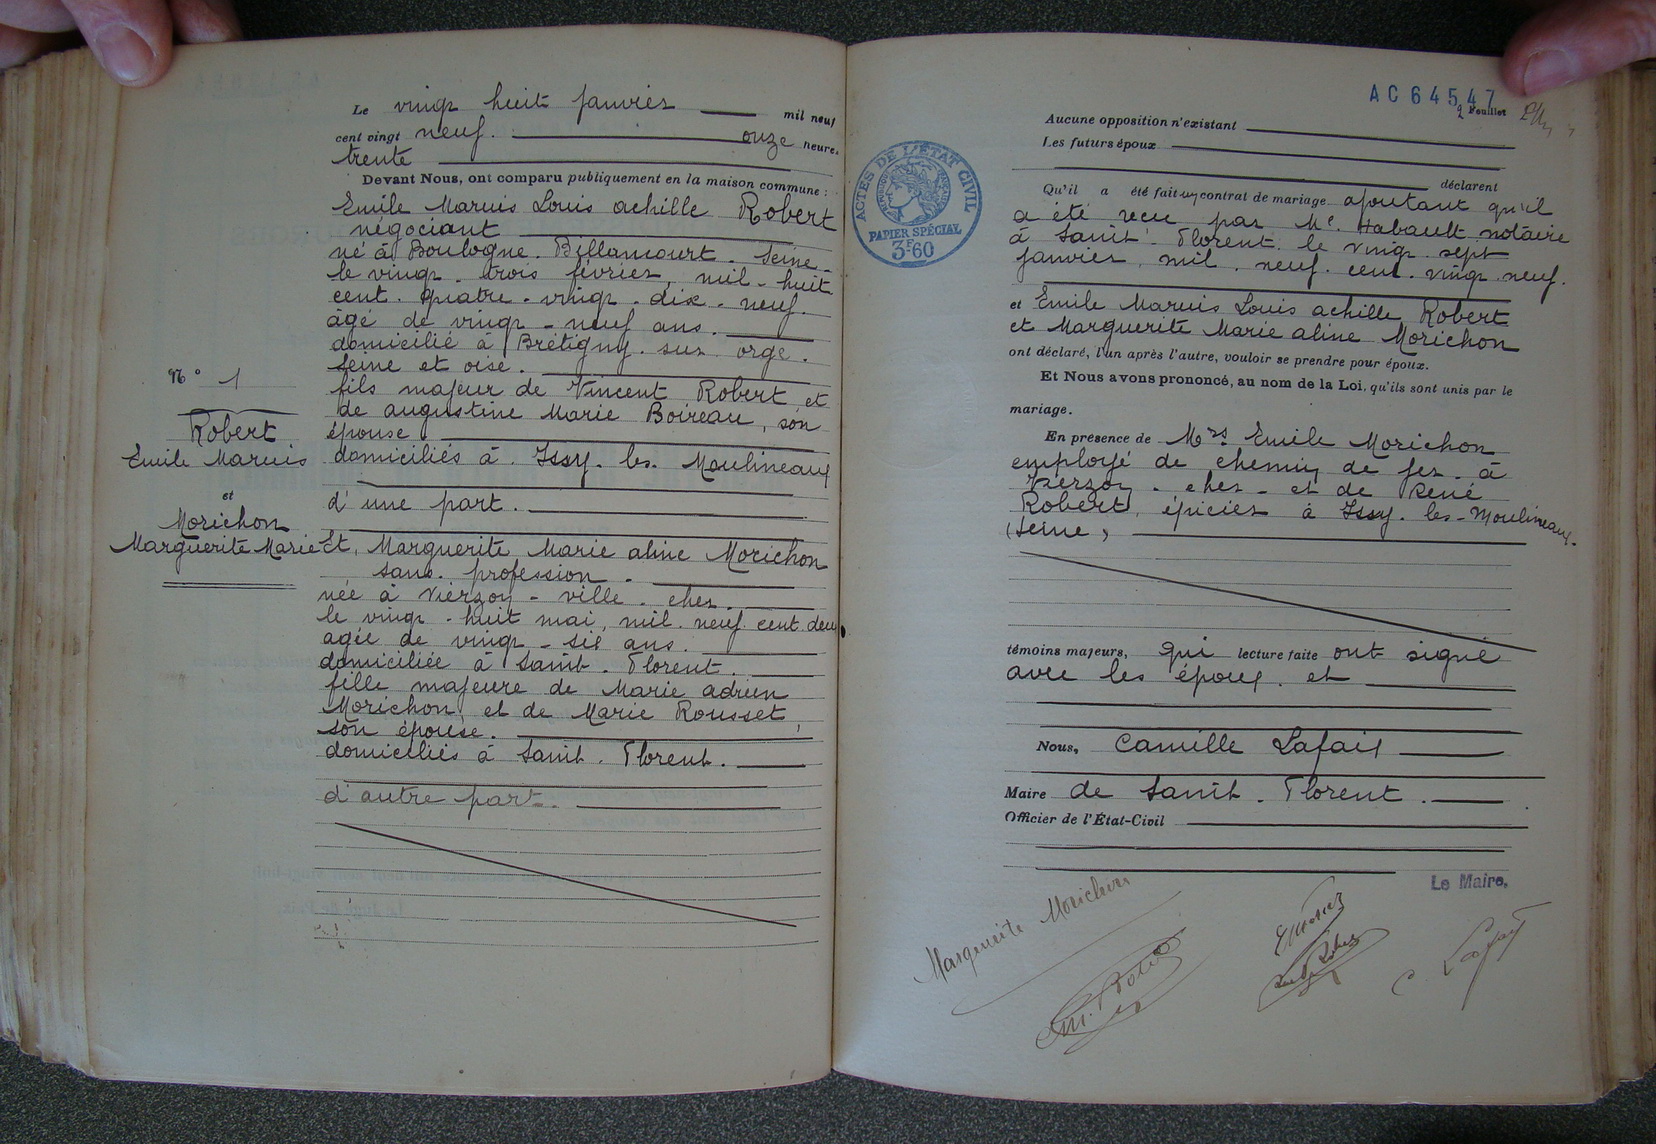 N° 1
Robert
Emile Maruis
et
Morichon
Marguerite Marie
Le vingt huit Janvier mil neuf
cent vingt neuf. onze heure.
trente
Devant Nous, ont comparu publiquement en la maison commune :
Emile Maruis Louis achille Robert
négociant
né à Boulogne. Billancourt. Seine.
le vingt. trois février, mil. huit
cent. quatre. vingt. dix. neuf.
âgé de vingt-neuf ans.
domicilié à Brétigny. sur orge.
Seine et oise.
fils majeur de Vincent Robert et
de augustine Marie Boireau, son
épouse
domiciliés à. Issy. les. Moulineaux
d'une part.
Et, Marguerite Marie aline Morichon
sans. profession.
née à Vierzon-ville. cher.
le vingt-huit mai, mil. neuf. cent. deux
agée de vingt-six ans.
domiciliée à Saint. Florent.
fille majeure de Marie adrien
Morichon, et de Marie Rousset,
son épouse.
domiciliés à Saint. Florent.
d'autre part.
AC 64547
2 Feuillet
ACTES DE L'ÉTAT CIVIL
RÉPUBLIQUE FRANÇAISE
PAPIER SPÉCIAL
3F.60
Aucune opposition n'existant
Les futurs époux
déclarent
Qu'il a été fait un contrat de mariage ajoutant qu'il
a été reçu par Me. Habault notaire
à Saint. Florent. le vingt. sept
Janvier. mil. neuf. cent. vingt neuf.
et Emile Maruis Louis achille Robert
et Marguerite Marie aline Morichon
ont déclaré, l'un après l'autre, vouloir se prendre pour époux.
Et Nous avons prononcé, au nom de la Loi, qu'ils sont unis par le
mariage.
En présence de Mrs Emile Morichon
employé de chemin de fer. à
Vierzon. cher. et de René
Robert, épicier à Issy. les-Moulineaux.
(Seine)
témoins majeurs, qui lecture faite ont signé
avec les époux. et
Nous, Camille Lafaix
Maire de Saint. Florent.
Officier de l'État-Civil
Le Maire,
Marguerite Morichon
C Lafaix